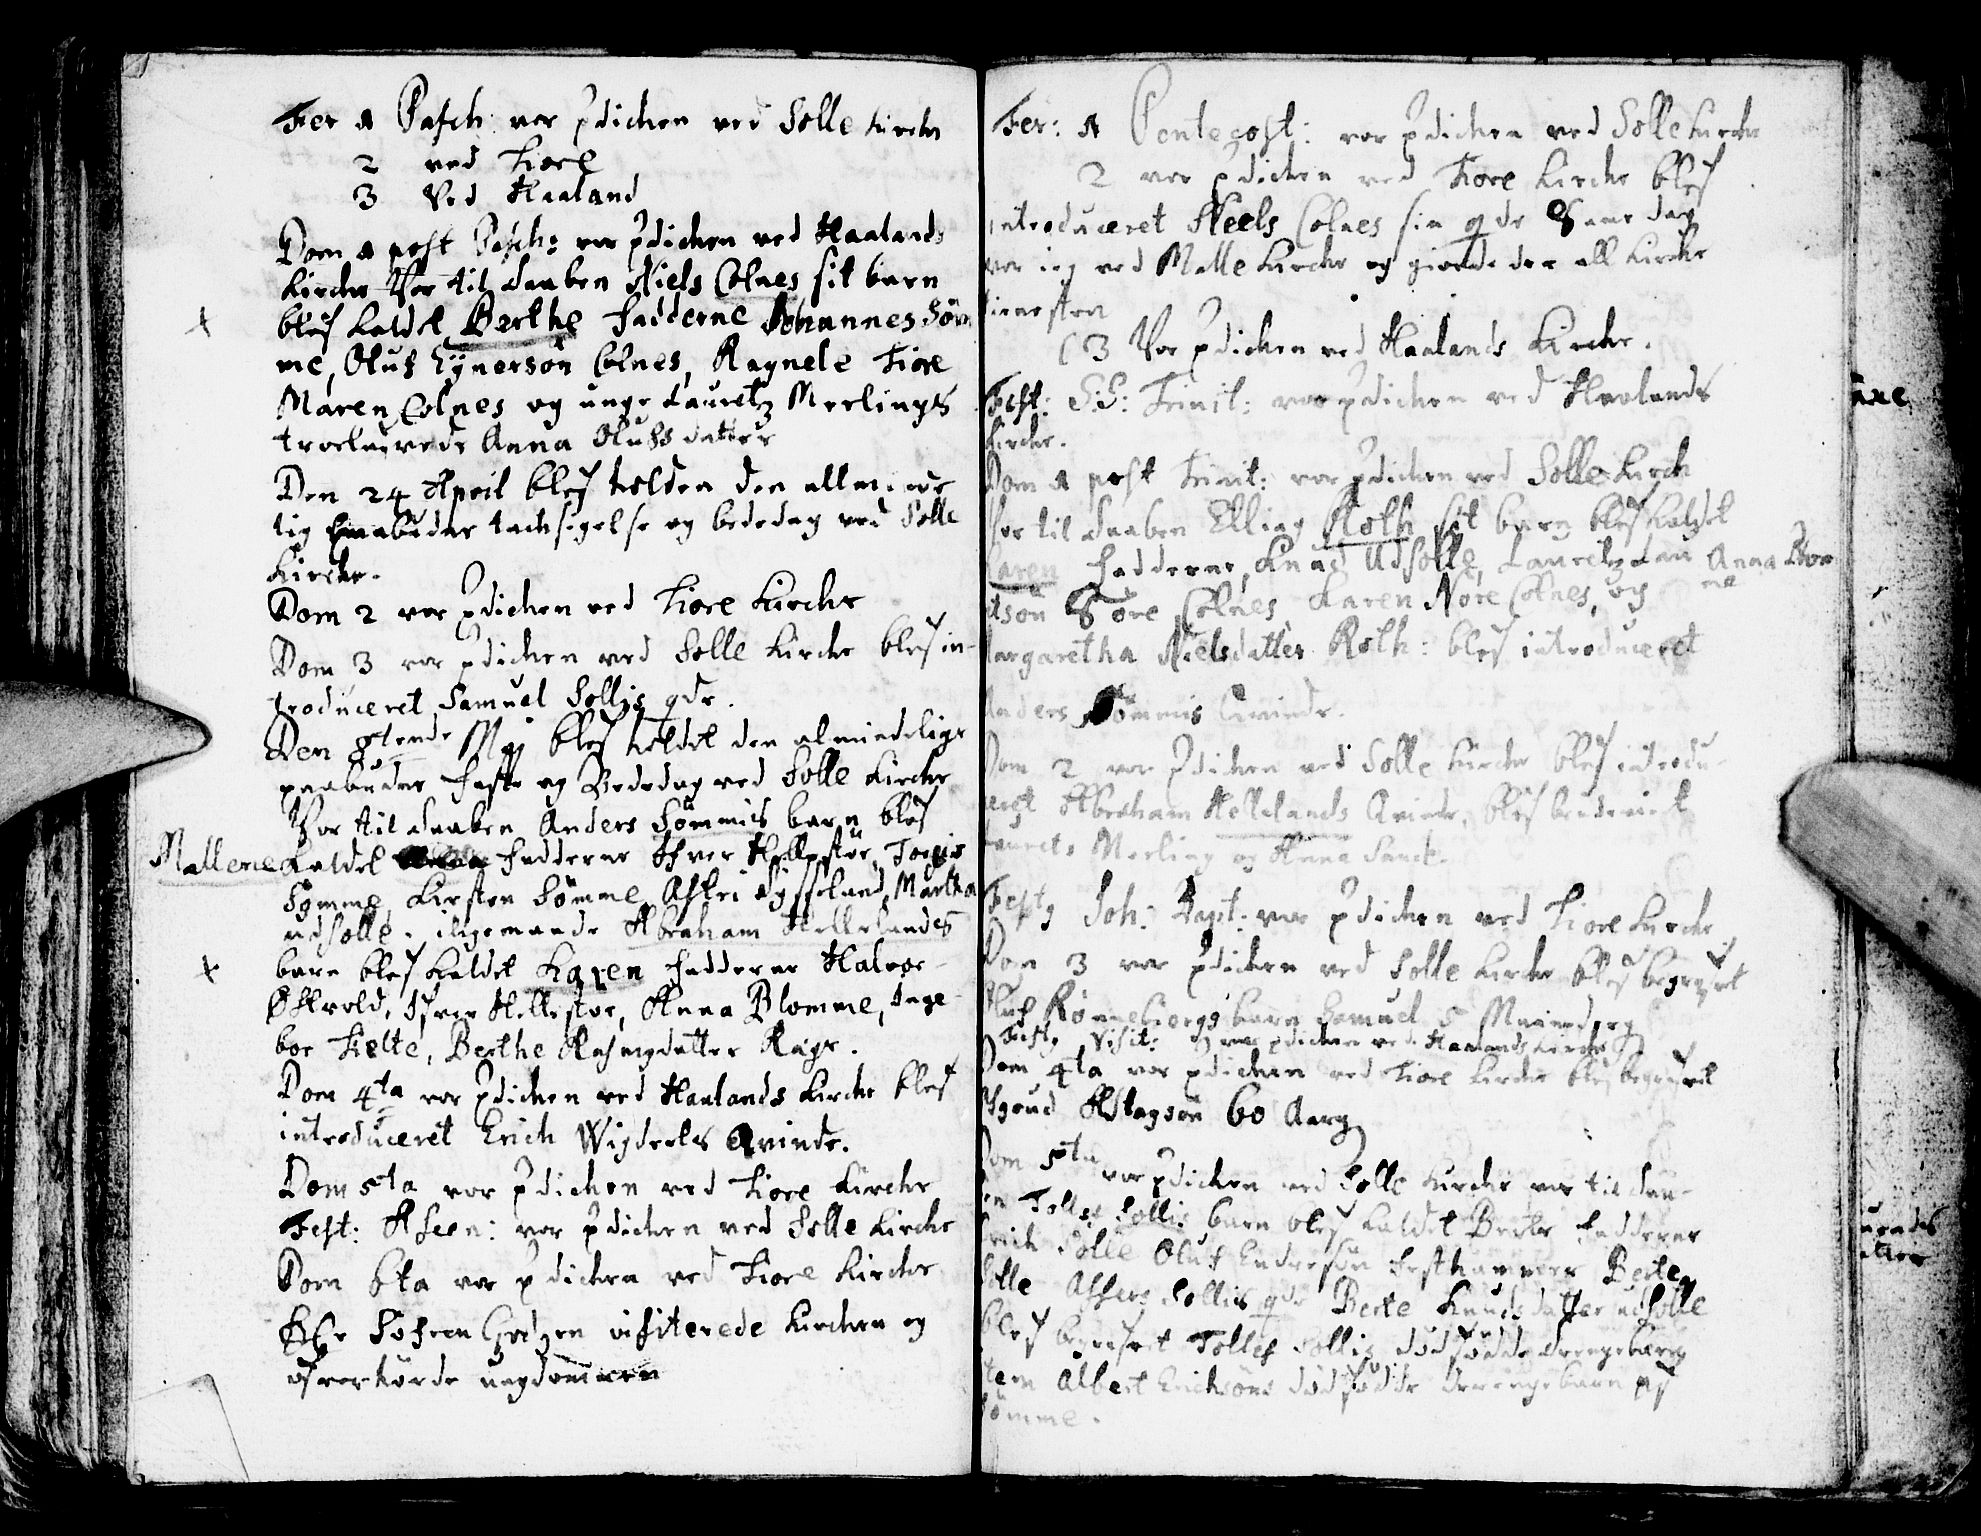 Fer 1 Pasch: var prdichen ved Solle kirche
2 ved Tiore
3 Ved Haaland
Dom 1 post Pasch: var prdichen ved Haalands
kirche Var til daaben Niels Colnes sit barn
blef kaldet Berthe fadderne Johannes Söm
me, Oluf Eÿnersön Colnes, Ragnele Tiore
Maren Colnes og unge Lauretz Meelings
trolovede Anna Olufsdatter
Den 24 April blef holden den allmin
tig paabudne tachsigelse og bededag ved Solle
Kirche.
Dom 2 var prdichen ved Tiore kirche
Dom 3 var prdichen ved Solle kirche blef in-
troduceret Samuel Sollis qde.
Den 8tende Maj blef holdet den almindelige
paabudne faste og Bededag ved Solle kirche
Var til daaben Anders Sömmis barn blef
Mallene kaldet fadderne Ifver Hellestöe, Torgis
Sömme, Kirsten Sömme, Askri Sysseland, Martha
udsolle. iligemaade Abraham Hellelandes
barn blef kaldet Karen fadderne Halvor
Østvold, Ifver Hellestøe, Anna Blomme, Inge-
bor Tielte, Berthe Rasmusdatter Rage.
Dom 4ta var prdichen ved Haalands kirche blef
introduceret Erich Wigdels Qvinde.
Dom 5ta var prdichen ved Tiore kirche
Fest: Ascen: var prdichen ved Solle kirche
Dom 6ta var prdichen ved Tiore kirche
HEr Sofren Godzen visiterede kirchen og
ofverhörde ungdommen
Fer: 1 Pentecost: var prdichen ved Solle kirche
2 var prdichen ved Tiore kirche blef
introduceret Neels Colnes sin qde Same dag
var ieg ved Malle kirche og giorde der all kirche
tienesten
3 Var prdichen ved Haalands Kirche.
Fest: S.S: Trinit: var prdichen ved Haalands
kirche.
Dom 1 post Trinit: var prdichen ved Solle kirch
Var til daaben Elling Roth sit barn blef kaldet
Karen fadderne, Knud Udsolle, Lauritz Anna
sön Sore Colnes Karen Nore Colnes, og
Margaretha Nielsdatter Roth: blef introduceret
Anders Sömmis Qvinde.
Dom 2 var prdichen ved Solle kirche blef introdu-
ceret Abraham Hellelands Qvinde, blef brudeviet
Laurets Meeling og Anna Sanck.
Festg Joh: Bapt: var prdichen ved Tiore kirche
Dom 3 var prdichen ved Solle kirche blef begrafvet
Oluf Rönnebiergs barn Samuel 5
Festg Visit: var prdichen ved Haalands kirche
Dom 4ta var prdichen ved Tiore kirche blef begrafvet
Aslagsön 60 Aarg
Dom 5ta var prdichen ved Solle kirche var til daa-
ben Tollef Sollis barn blef kaldet Berte fadderne
Erich Solle Oluf Endresön Berte
Solle Sollis qde Berte Knudsdatter udsolle
blef begrafvet Tollef Sollis dödfødde drengebarn
item Albert Ericksöns dödfödde drengebarn af
Sömme.